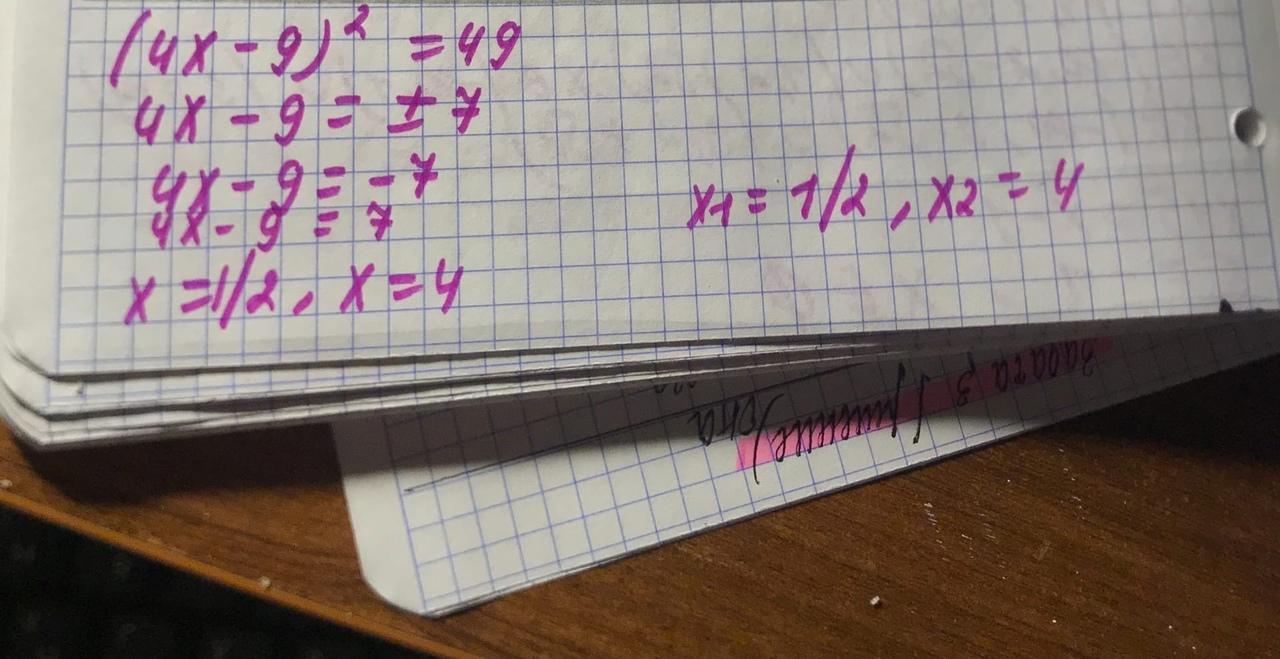 (4x - 9)² = 49
4x - 9 = ± 7
4x - 9 = - 7
4x - 9 = 7
x = 1/2, x = 4
x1 = 1/2, x2 = 4
задача 3